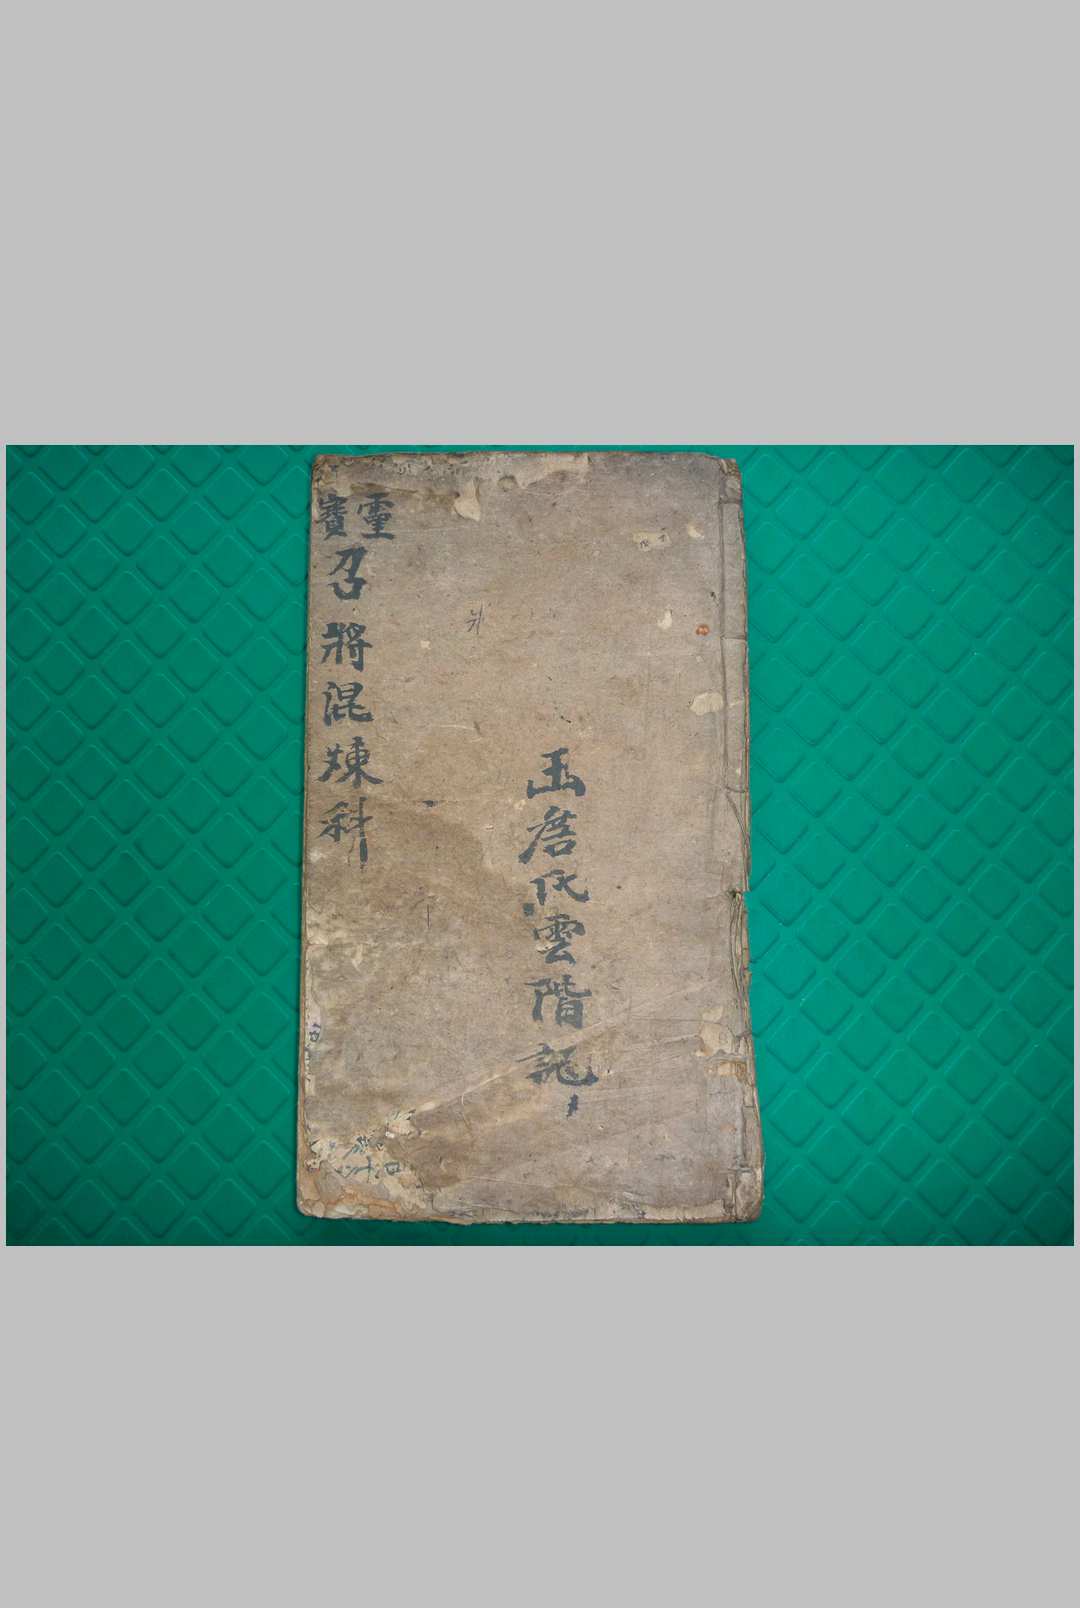 氏雲階記
靈寶
召將混煉科